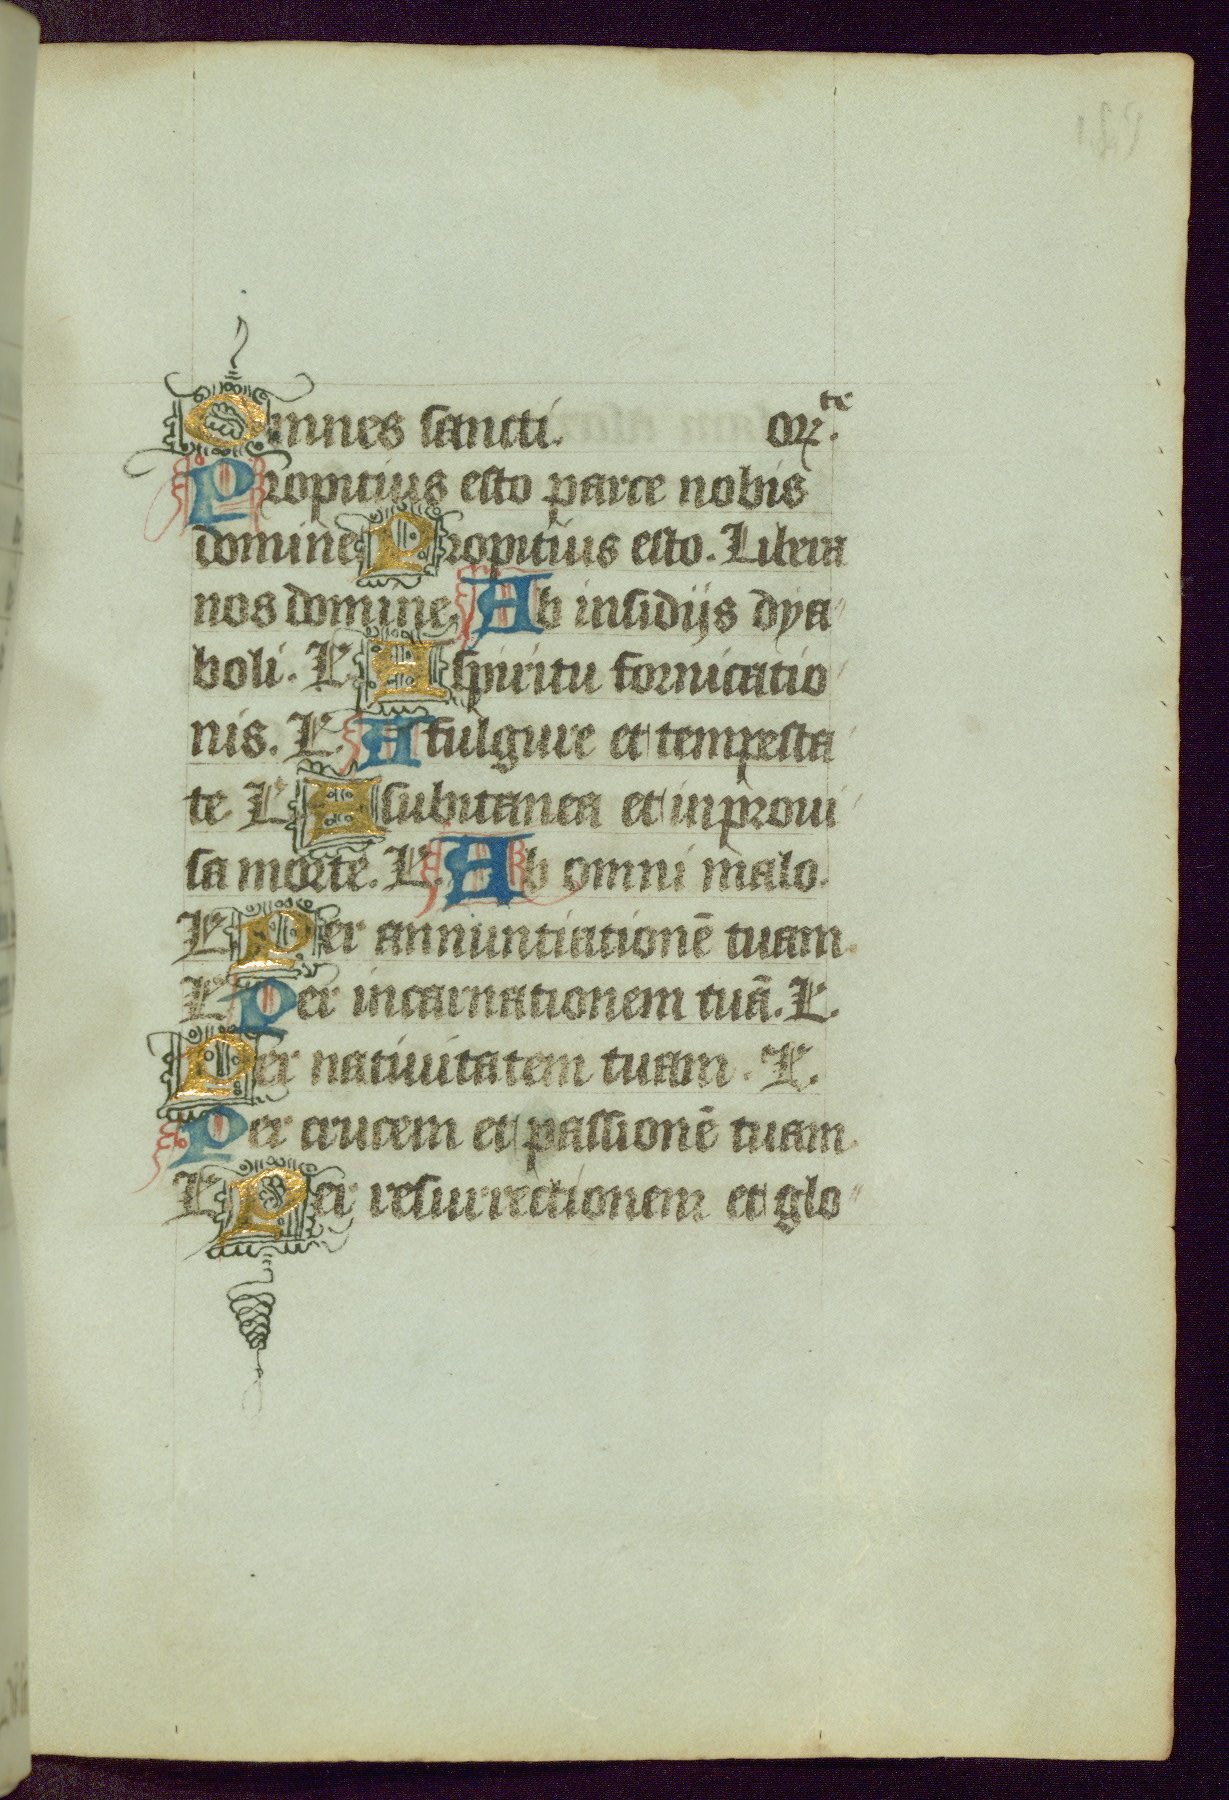 Omnes sancti. or.te
Propitius esto parce nobis
domine Propitius esto. Libera
nos domine. Ab insidijs dya
boli. L. A spiritu fornicatio
nis. L. A fulgure et tempesta
te L A subitanea et inproui
sa morte. L. Ab omni malo.
L Per annuntiationē tuam.
L Per incarnationem tuā. L.
Per natiuitatem tuam. L.
Per crucem et passionē tuam.
L Per resurrectionem et glo